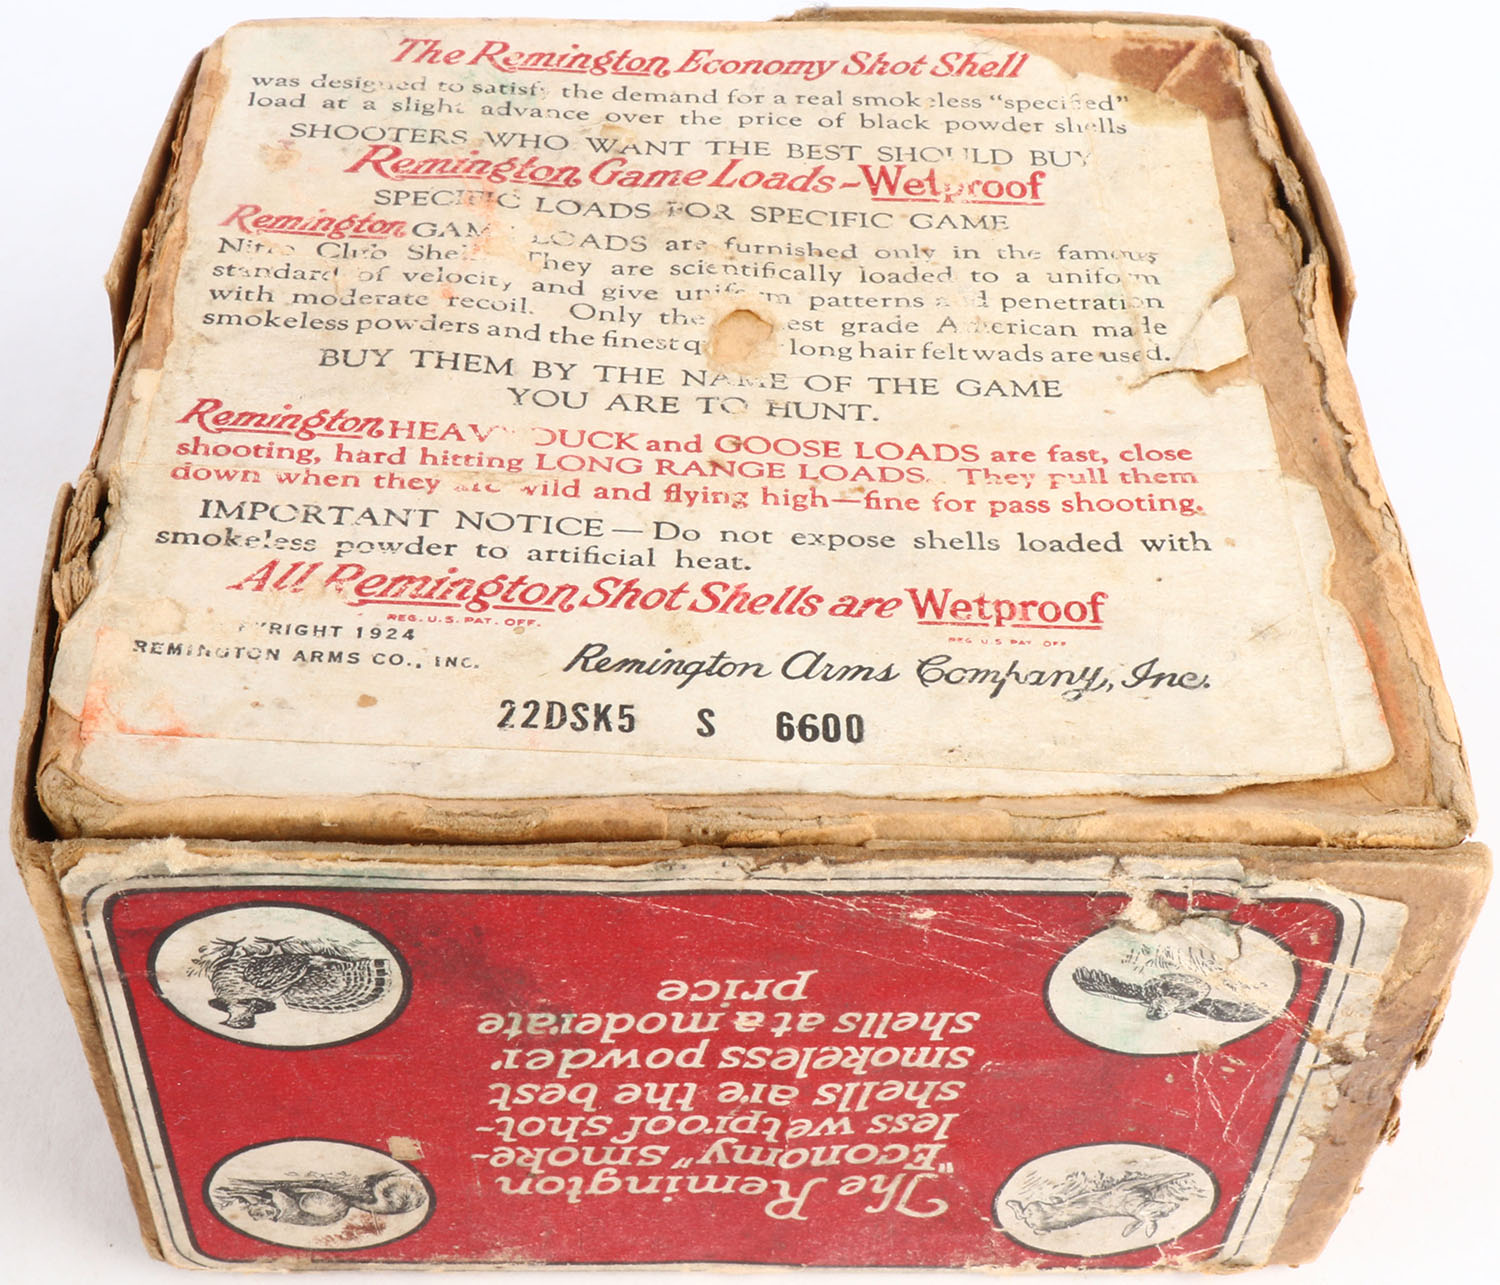 The Remington Economy Shot Shell
was designed to satisfy the demand for a real smokeless "specified"
load at a slight advance over the price of black powder shells
SHOOTERS WHO WANT THE BEST SHOULD BUY
Remington Game Loads-Wetproof
SPECIFIC LOADS FOR SPECIFIC GAME
Remington GAME LOADS are furnished only in the famous
Nitro Club Shells. They are scientifically loaded to a uniform
standard of velocity and give uniform patterns and penetration
with moderate recoil. Only the est grade American made
smokeless powders and the finest q long hair felt wads are used.
BUY THEM BY THE NAME OF THE GAME
YOU ARE TO HUNT.
Remington HEAVY DUCK and GOOSE LOADS are fast, close
shooting, hard hitting LONG RANGE LOADS. They pull them
down when they are wild and flying high—fine for pass shooting.
IMPORTANT NOTICE—Do not expose shells loaded with
smokeless powder to artificial heat.
All Remington Shot Shells are Wetproof
REG. U.S. PAT. OFF.
REG U.S PAT OFF
YRIGHT 1924
REMINGTON ARMS CO., INC.
Remington Arms Company, Inc.
22DSK5 S 6600
The Remington
"Economy" smoke-
less wetproof shot-
shells are the best
smokeless powder
shells at a moderate
price